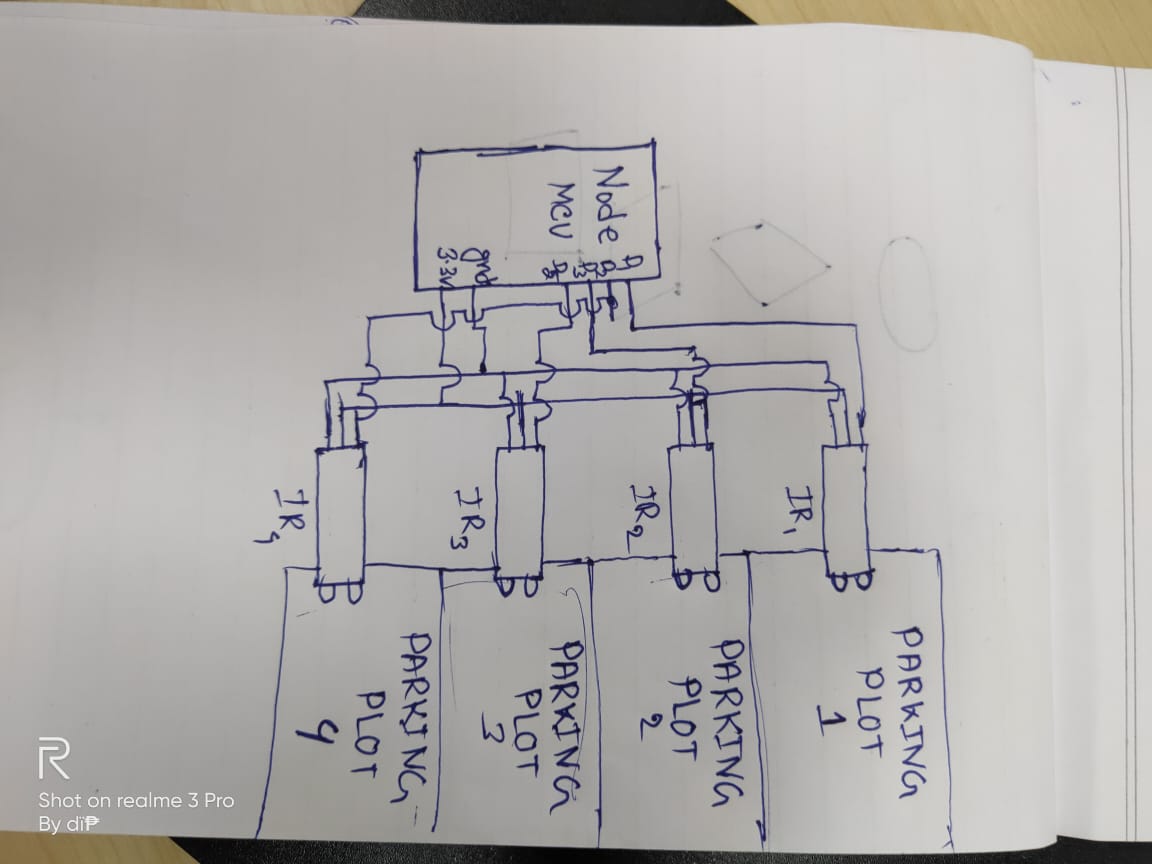 Node
MCU
D1
D2
D3
gnd
3.3V
IR1
IR2
IR3
IR4
PARKING
PLOT
1
PARKING
PLOT
2
PARKING
PLOT
3
PARKING
PLOT
4
R
Shot on realme 3 Pro
By dïP